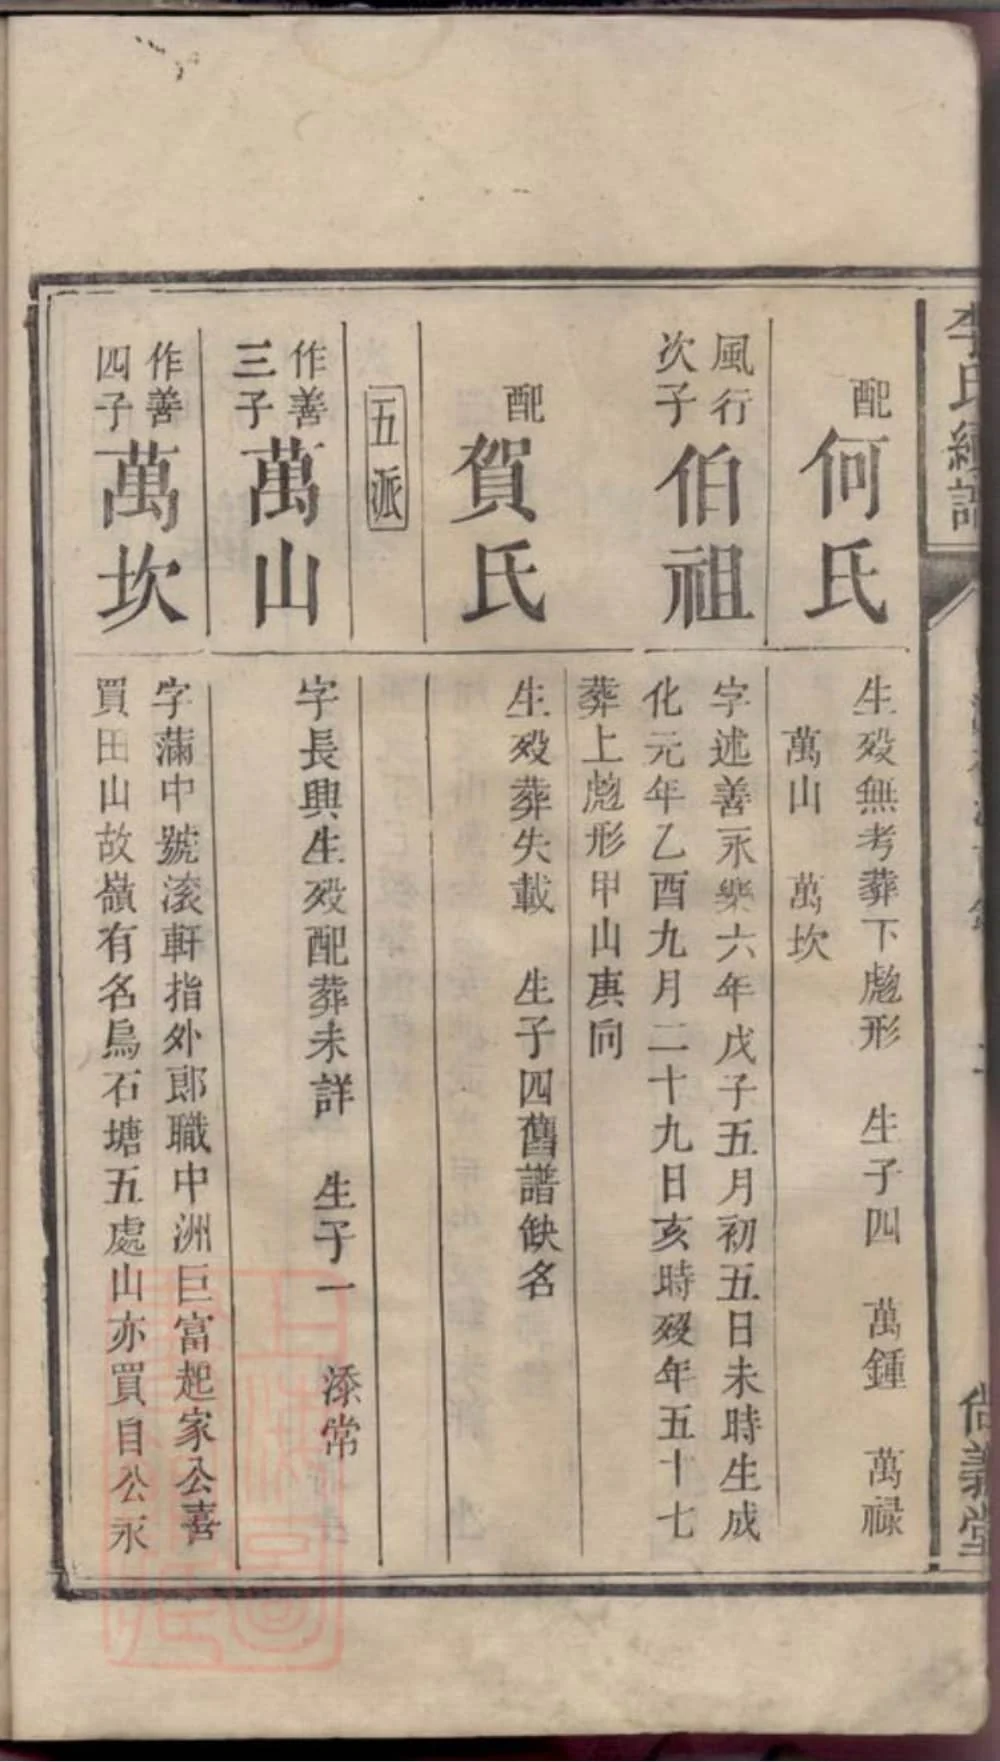 李氏續譜
尚義堂
配
何氏
生歿無考葬下彪形　生子四　萬鍾　萬祿
萬山　萬坎
風行
次子
伯祖
字述善永樂六年戊子五月初五日未時生成
化元年乙酉九月二十九日亥時歿年五十七
葬上彪形甲山庚向
配
賀氏
生歿葬失載　生子四舊譜缺名
五派
作善
三子
萬山
字長興生歿配葬未詳　生子一　添常
作善
四子
萬坎
字滿中號滾軒指外郎職中洲巨富起家公喜
買田山故嶺有名鳥石塘五處山亦買自公永